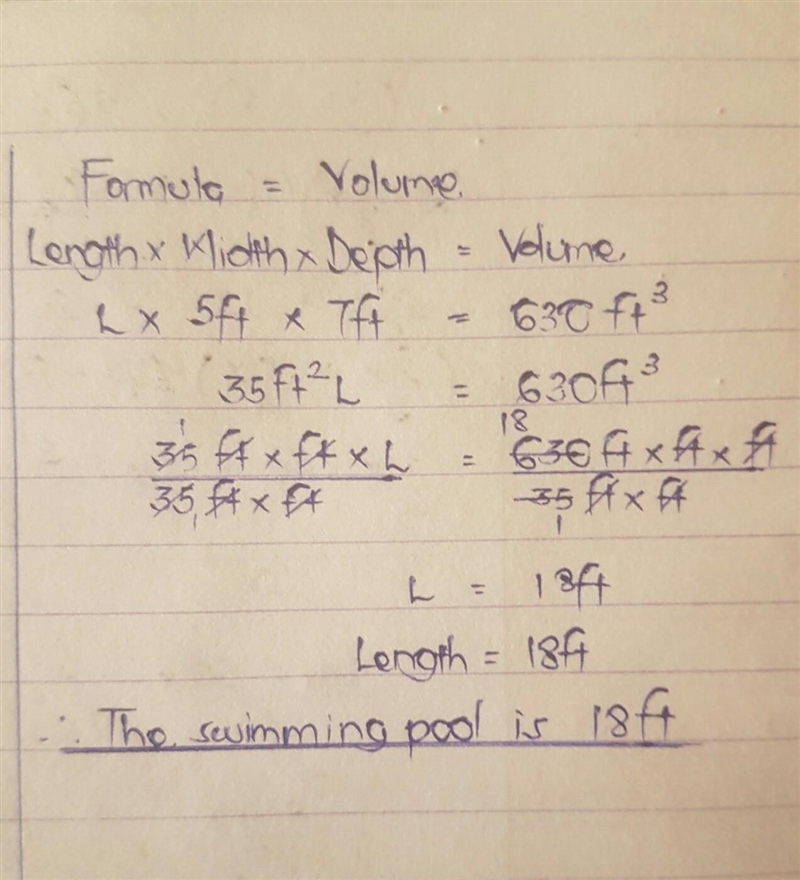 Formula = Volume.
Length × Width × Depth = Volume.
L × 5ft × 7ft = 630 ft³
35ft² L = 630ft³
1 18
35 ft × ft × L = 630 ft × ft × ft
35 ft × ft 35 ft × ft
1 1
L = 18ft
Length = 18ft
∴ The swimming pool is 18ft